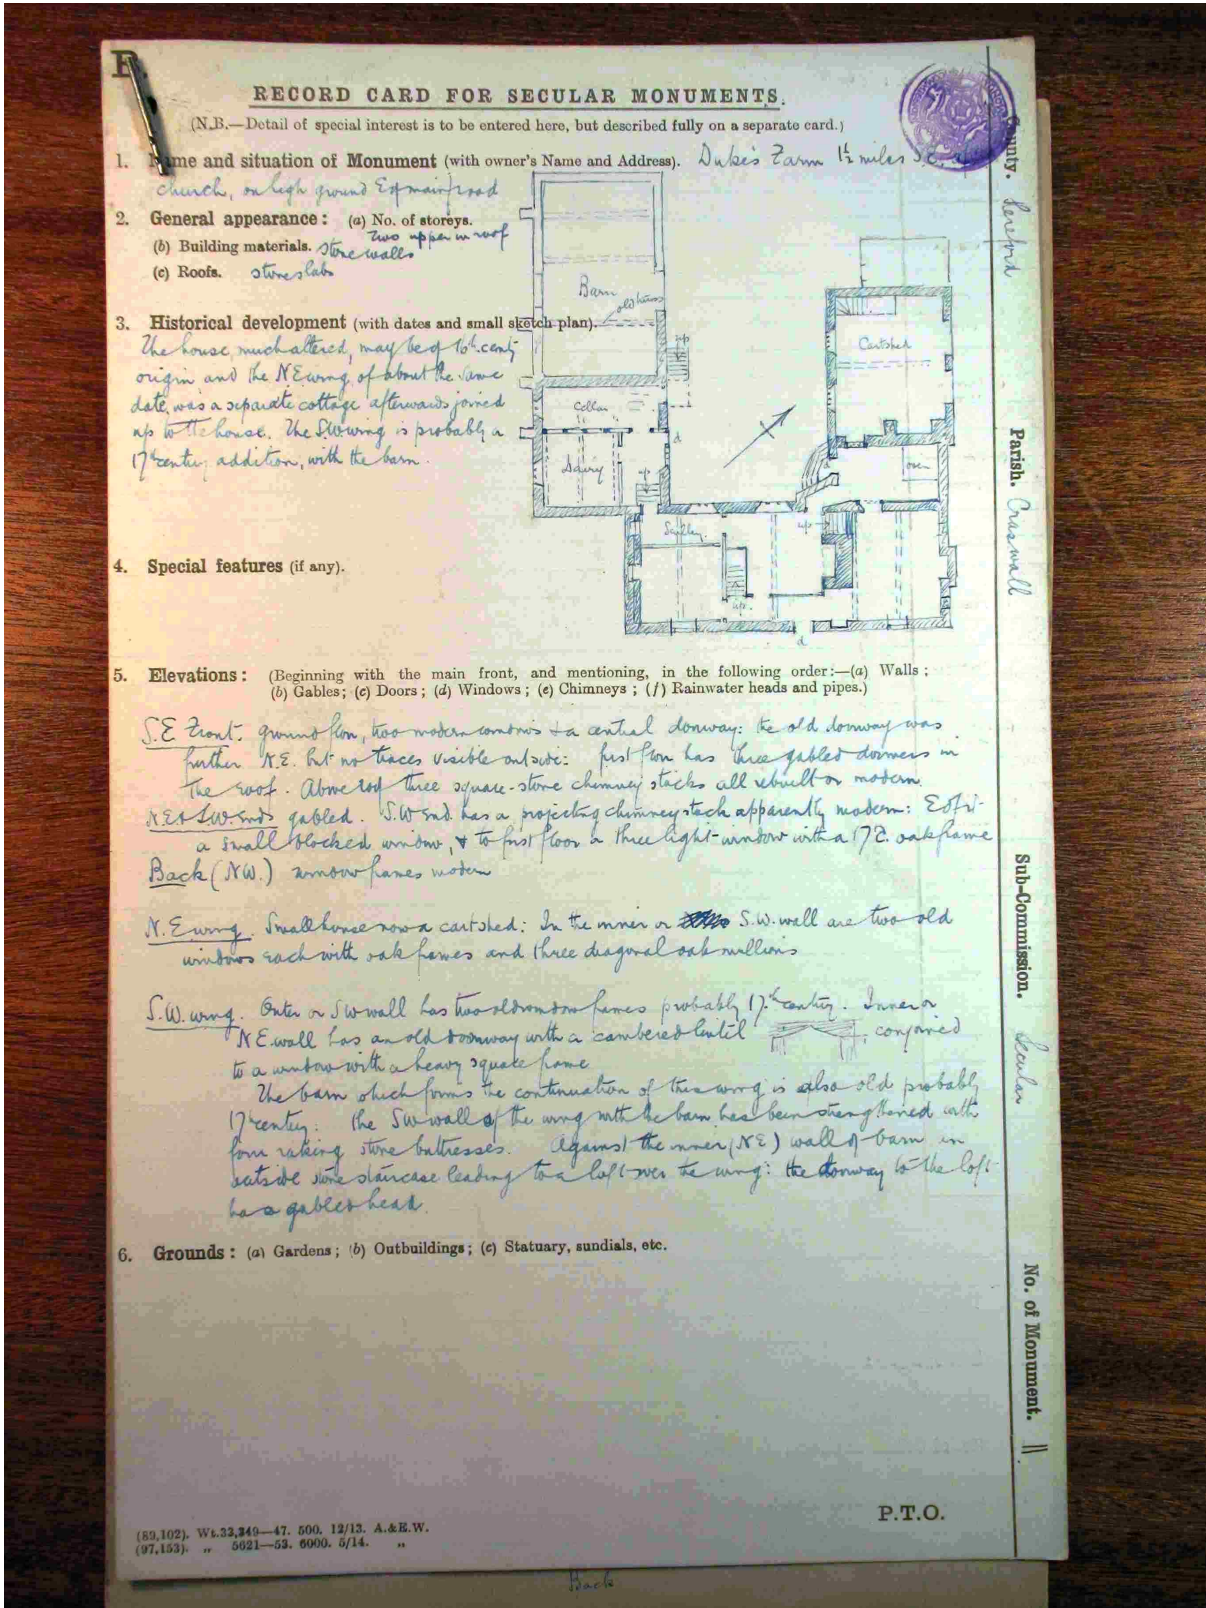 RECORD CARD FOR SECULAR MONUMENTS.
(N.B.—Detail of special interest is to be entered here, but described fully on a separate card.)
1. Name and situation of Monument (with owner's Name and Address). Duke's Farm 1½ miles S.E. of
church, on high ground E of main road
2. General appearance: (a) No. of storeys.
two upper in roof
(b) Building materials. stone walls
(c) Roofs. stone slabs
3. Historical development (with dates and small sketch plan).
The house, much altered, may be of 16th. centy
origin and the N E wing, of about the same
date, was a separate cottage afterwards joined
up to the house. The S.W. wing is probably a
17th century addition, with the barn.
Barn
old truss
up
Cellar
d
Dairy
up
Scullery
up
up
d
Cartshed
oven
4. Special features (if any).
5. Elevations: (Beginning with the main front, and mentioning, in the following order:—(a) Walls;
(b) Gables; (c) Doors; (d) Windows; (e) Chimneys; (f) Rainwater heads and pipes.)
S.E Front. ground floor, two modern windows & a central doorway: the old doorway was
further N.E. but no traces visible outside: first floor has three gabled dormers in
the roof. Above roof three square-stone chimney stacks all rebuilt or modern.
N E & S.W Ends gabled. S.W End has a projecting chimney stack apparently modern: E of it
a small blocked window, & to first floor a three light-window with a 17 C. oak frame
Back (NW.) window frames modern
N. E wing. Small house now a cartshed: In the inner or S.W. wall are two old
windows each with oak frames and three diagonal oak mullions
S.W. wing. Outer or S W wall has two old window frames probably 17th century. Inner or
N E. wall has an old doorway with a cambered lintel, conjoined
to a window with a heavy square frame
The barn which forms the continuation of this wing is also old probably
17th century. the S W wall of the wing with the barn has been strengthened with
four raking stone buttresses. Against the inner (N E) wall of barn an
outside stone staircase leading to a loft over the wing: the doorway to the loft
has a gabled head.
6. Grounds: (a) Gardens; (b) Outbuildings; (c) Statuary, sundials, etc.
P.T.O.
(89,102). Wt.33,349—47. 500. 12/13. A.&E.W.
(97,153). „ 5621—53. 6000. 5/14. „
Back
County. Hereford
Parish. Craswall
Sub-Commission. Secular
No. of Monument. 11